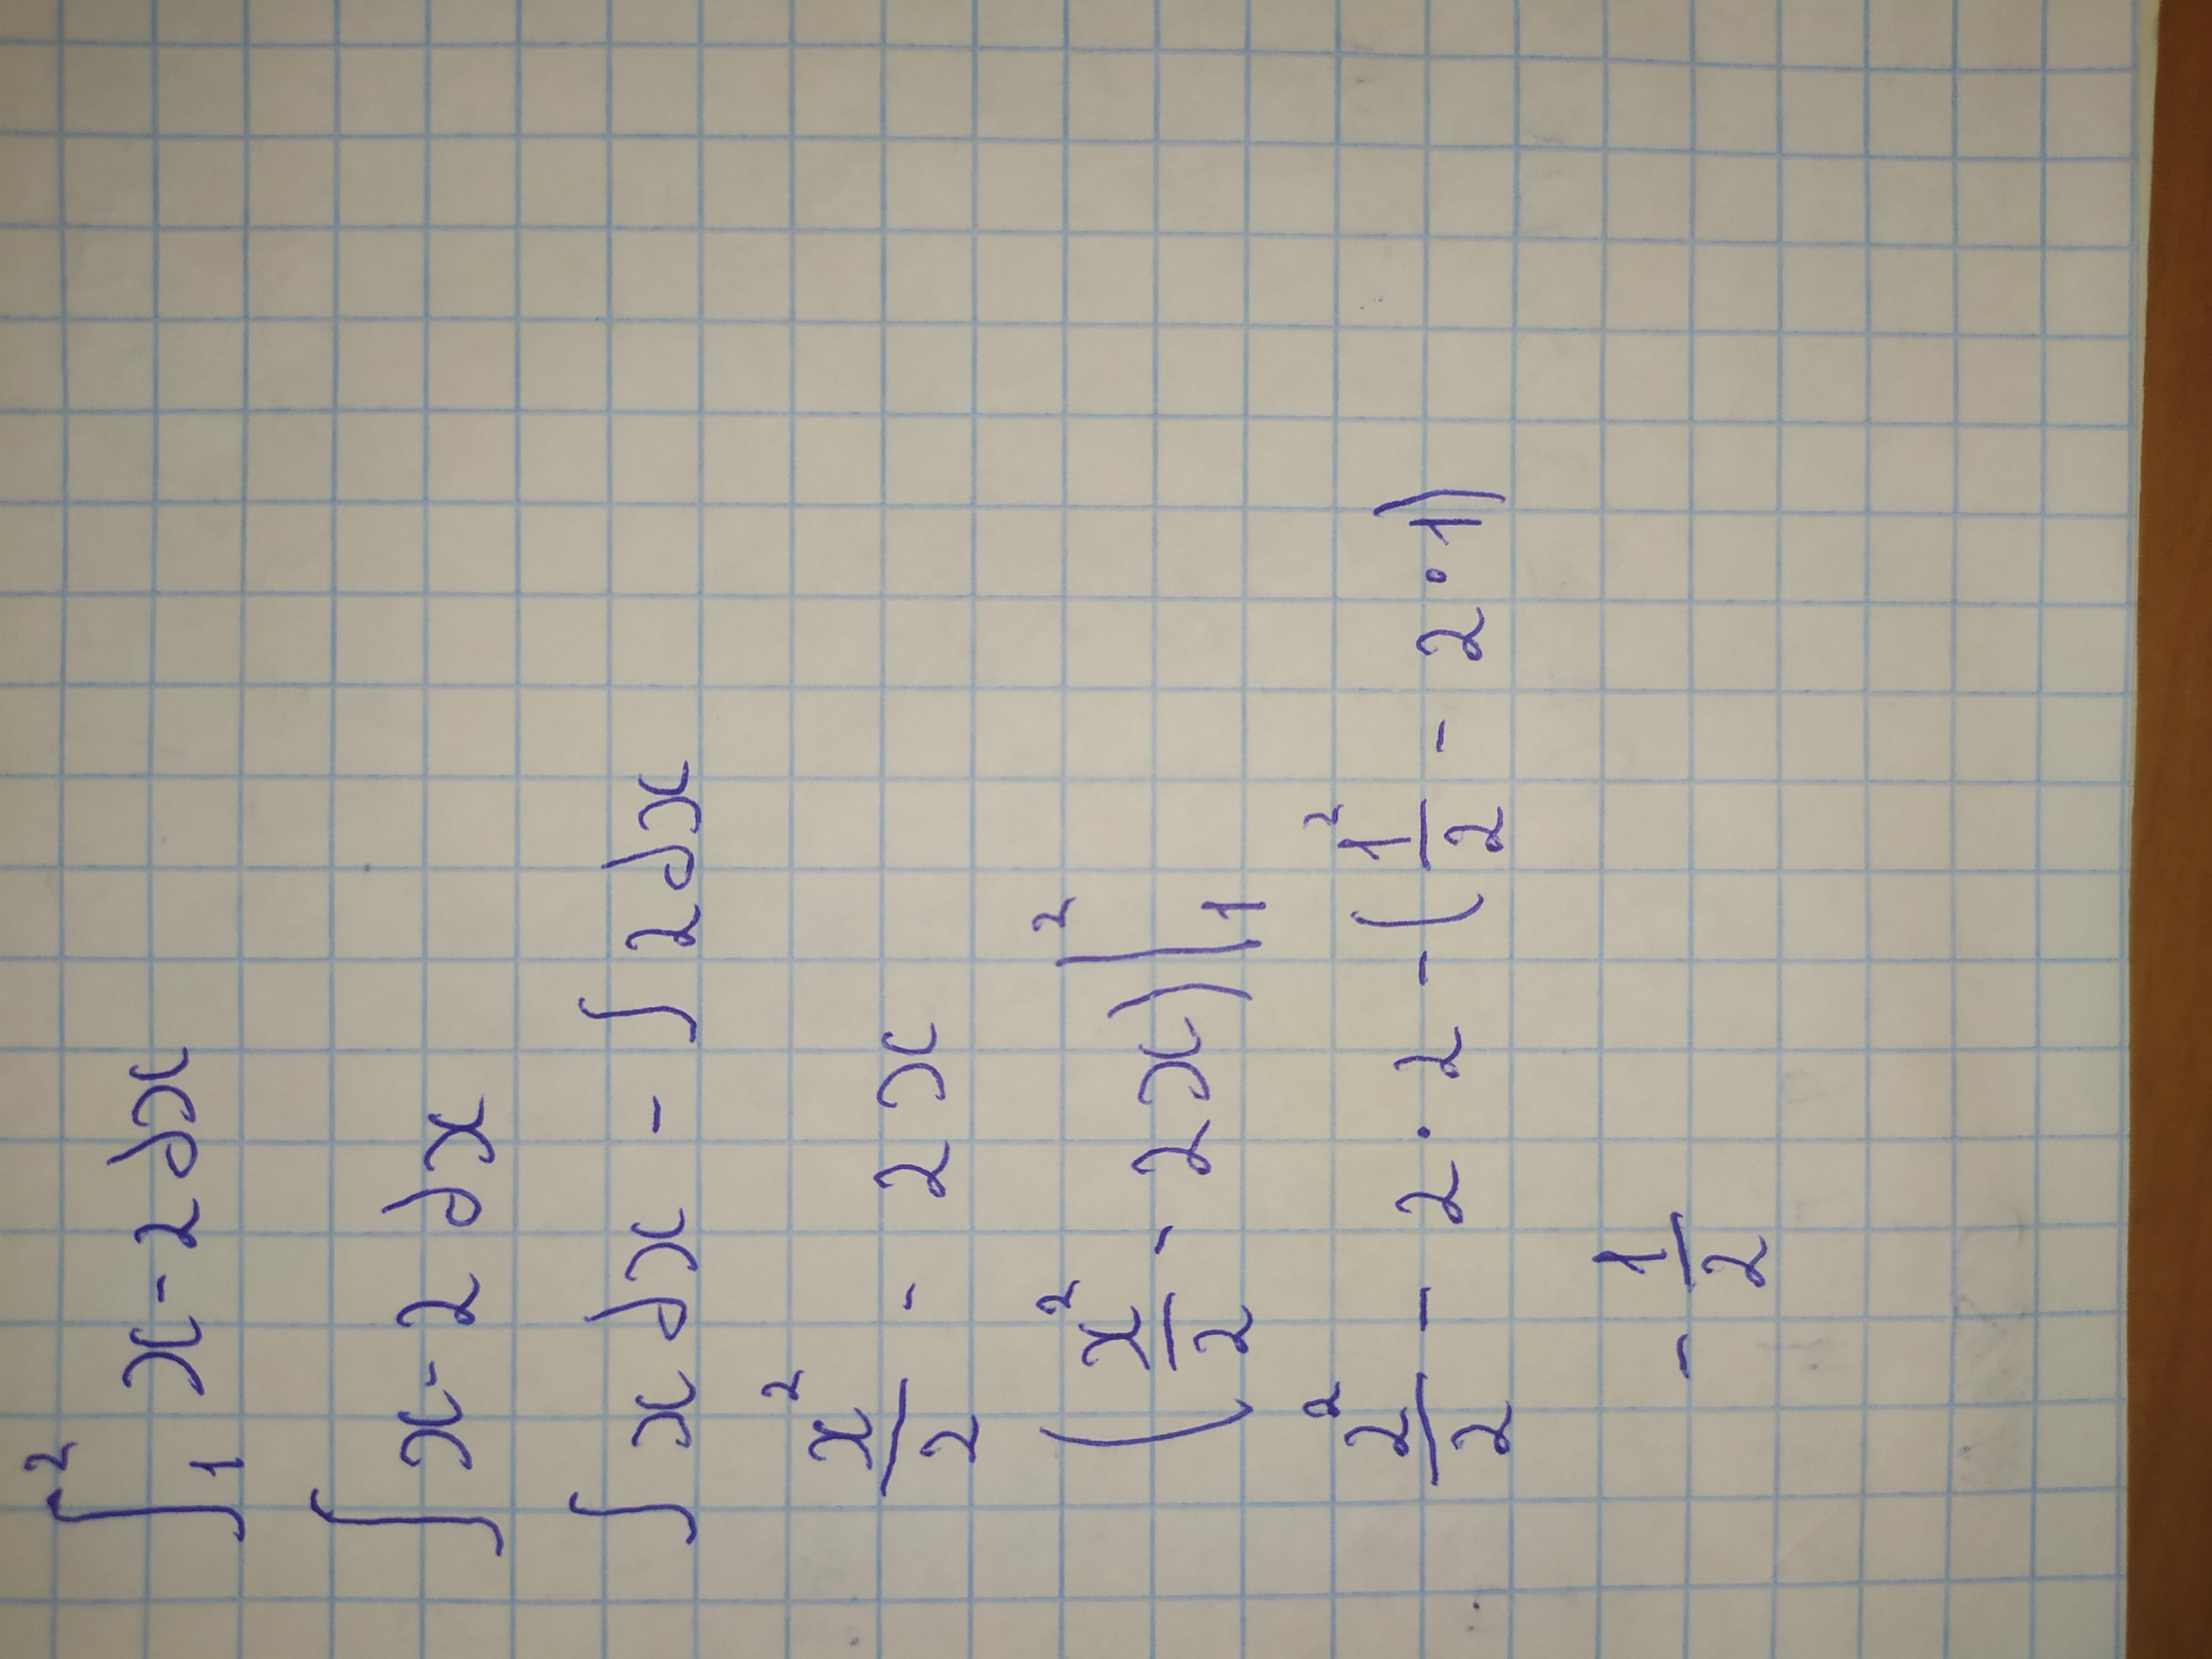 ∫₁² x - 2 dx
∫ x - 2 dx
∫ x dx - ∫ 2 dx
x²/2 - 2x
(x²/2 - 2x)|₁²
2²/2 - 2·2 - (1²/2 - 2·1)
- 1/2